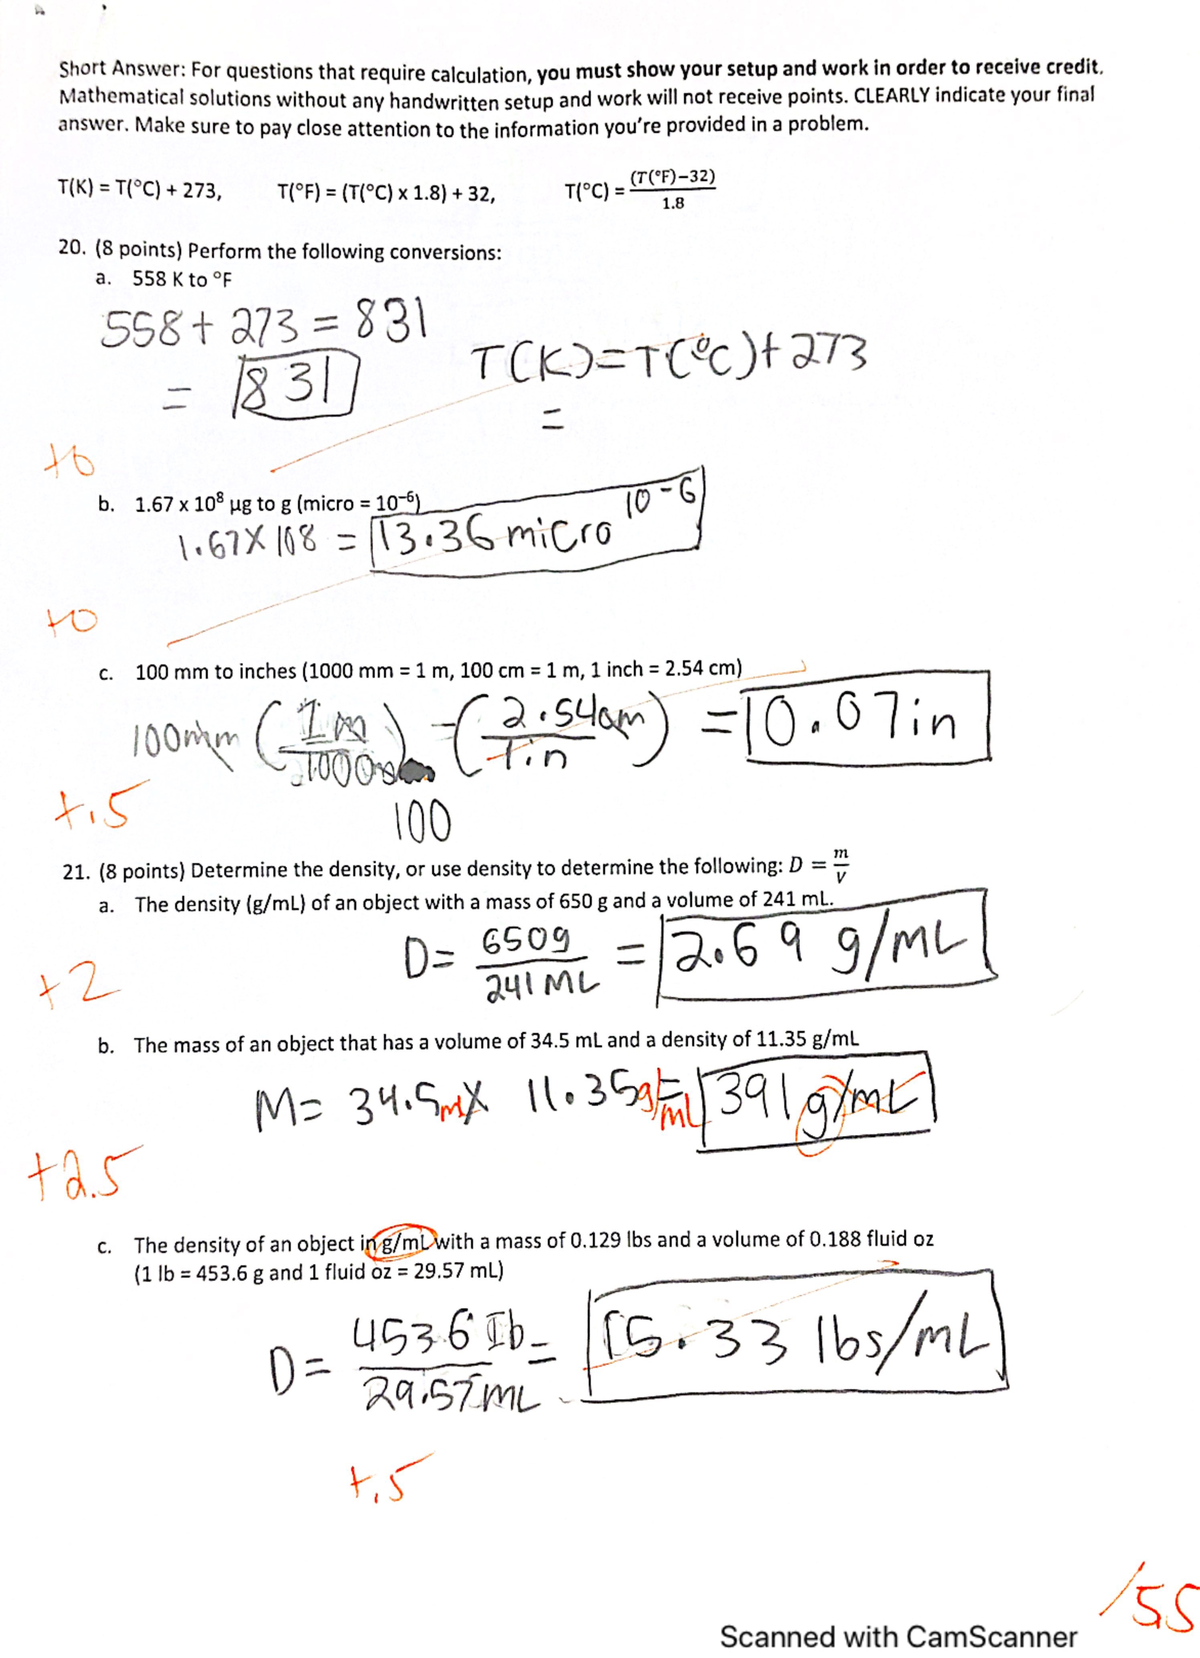 Short Answer: For questions that require calculation, you must show your setup and work in order to receive credit.
Mathematical solutions without any handwritten setup and work will not receive points. CLEARLY indicate your final
answer. Make sure to pay close attention to the information you're provided in a problem.
T(K) = T(°C) + 273, T(°F) = (T(°C) x 1.8) + 32, T(°C) = (T(°F)−32)/1.8
20. (8 points) Perform the following conversions:
a. 558 K to °F
558 + 273 = 831
= 831
T(K)=T(°C)+273
=
+0
b. 1.67 x 10⁸ µg to g (micro = 10⁻⁶)
1.67X 108 = 13.36 micro 10-6
+0
c. 100 mm to inches (1000 mm = 1 m, 100 cm = 1 m, 1 inch = 2.54 cm)
100mm (1m/1000) (2.54cm/1in) = 0.07in
100
+.5
21. (8 points) Determine the density, or use density to determine the following: D = m/V
a. The density (g/mL) of an object with a mass of 650 g and a volume of 241 mL.
D= 650g/241 ML = 2.69 g/mL
+2
b. The mass of an object that has a volume of 34.5 mL and a density of 11.35 g/mL
M= 34.5 mL X 11.35 g/mL = 391 g/mL
+2.5
c. The density of an object in g/mL with a mass of 0.129 lbs and a volume of 0.188 fluid oz
(1 lb = 453.6 g and 1 fluid oz = 29.57 mL)
D= 453.6 lb/29.57 mL = 15.33 lbs/mL
+.5
/55
Scanned with CamScanner